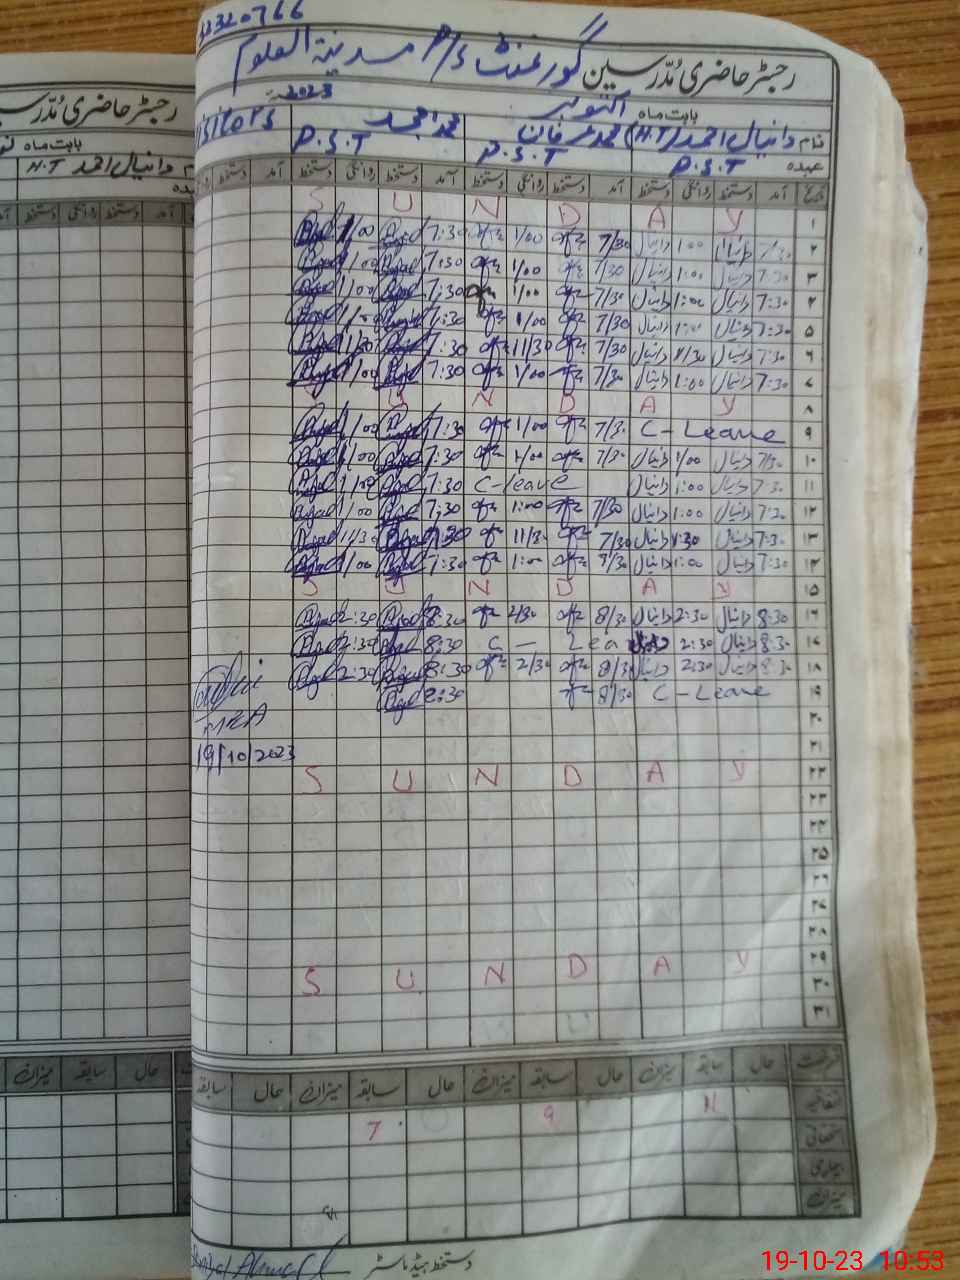 32320766
رجسٹر حاضری مُدّرسین گورنمنٹ P/S مدینۃ العلوم
بابت ماہ اکتوبر 2023
نام دانیال احمد (H.T) محمد عرفان محمد امجد Visitors
عہدہ P.S.T P.S.T P.S.T
تاریخ آمد دستخط روانگی دستخط آمد دستخط روانگی دستخط آمد دستخط روانگی دستخط آمد دستخط
۱ S U N D A Y
۲ 7:30 دانیال 1:00 دانیال 7/30 1/00 7:30 1/00
۳ 7:30 دانیال 1:00 دانیال 7/30 1/00 7:30 1/00
۴ 7:30 دانیال 1:00 دانیال 7/30 1/00 7:30 1/00
۵ 7:30 دانیال 1:00 دانیال 7/30 1/00 7:30 1/00
۶ 7:30 دانیال 11/30 دانیال 7/30 11/30 7:30 11/30
۷ 7:30 دانیال 1:00 دانیال 7/30 1/00 7:30 1/00
۸ S U N D A Y
۹ C-Leave 7/30 1/00 7:30 1/00
۱۰ 7/30 دانیال 1/00 دانیال 7/30 1/00 7:30 1/00
۱۱ 7:30 دانیال 1:00 دانیال C-leave 7:30 1/00
۱۲ 7:30 دانیال 1:00 دانیال 7/30 1:00 7:30 1/00
۱۳ 7:30 دانیال 11:30 دانیال 7/30 11/30 7:30 11/30
۱۴ 7:30 دانیال 1:00 دانیال 7/30 1:00 7:30 1/00
۱۵ S U N D A Y
۱۶ 8:30 دانیال 2:30 دانیال 8/30 2/30 8:30 2:30
۱۷ 8:30 دانیال 2:30 C - Lea 8:30 2:30
۱۸ 8:30 دانیال 2:30 دانیال 8/30 2/30 8:30 2:30
۱۹ C-Leave 8/30 8:30
۲۰
۲۱ 19/10/2023
۲۲ S U N D A Y
۲۳
۲۴
۲۵
۲۶
۲۷
۲۸
۲۹ S U N D A Y
۳۰
۳۱
رخصت حال سابقہ میزان حال سابقہ میزان حال سابقہ میزان حال سابقہ
اتفاقیہ 11 9 7
استحقاقی
بیماری
میزان
دستخط ہیڈ ماسٹر
رجسٹر حاضری مُدّرسین
بابت ماہ
دانیال احمد H.T
حال سابقہ میزان
19-10-23 10:53